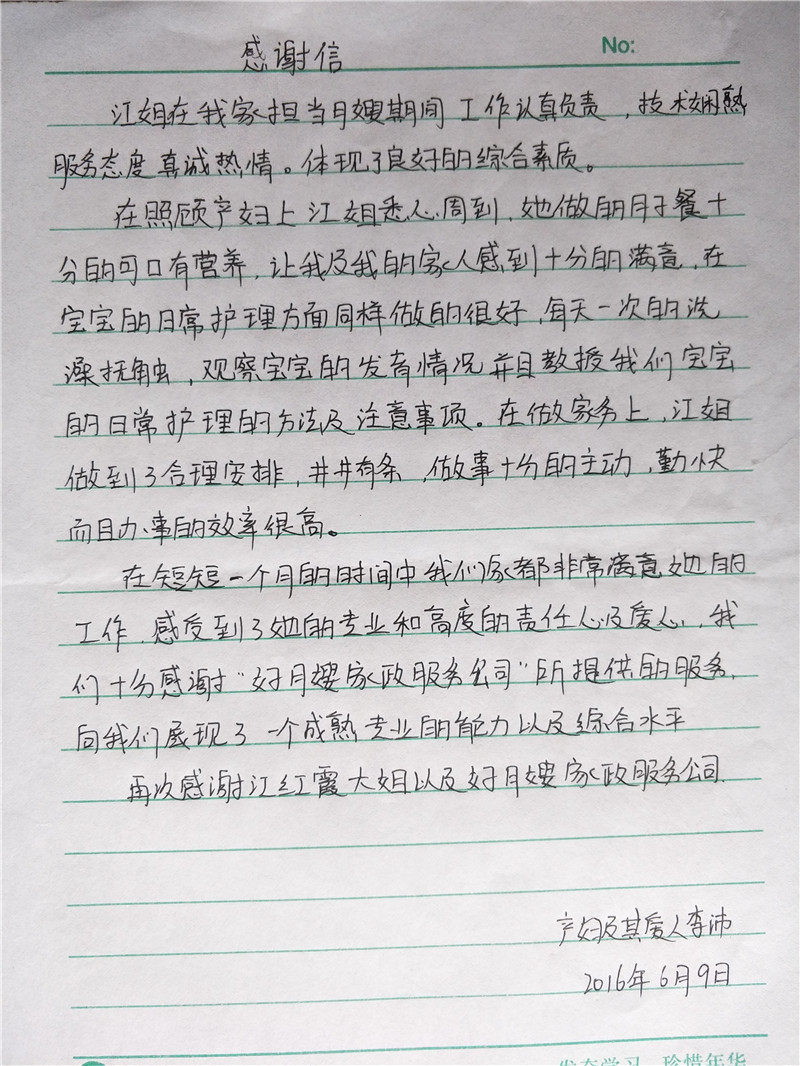 感谢信
No:
江姐在我家担当月嫂期间工作认真负责，技术娴熟
服务态度真诚热情。体现了良好的综合素质。
在照顾产妇上江姐悉心周到，她做的月子餐十
分的可口有营养，让我及我的家人感到十分的满意，在
宝宝的日常护理方面同样做的很好，每天一次的洗
澡抚触，观察宝宝的发育情况并且教授我们宝宝
的日常护理的方法及注意事项。在做家务上，江姐
做到了合理安排，井井有条，做事十分的主动，勤快
而且办事的效率很高。
在短短一个月的时间中我们家都非常满意她的
工作，感受到了她的专业和高度的责任心及爱心，我
们十分感谢“好月嫂家政服务公司”所提供的服务，
向我们展现了一个成熟专业的能力以及综合水平
再次感谢江红霞大姐以及好月嫂家政服务公司
产妇及其爱人李沛
2016年6月9日
发奋学习 珍惜年华